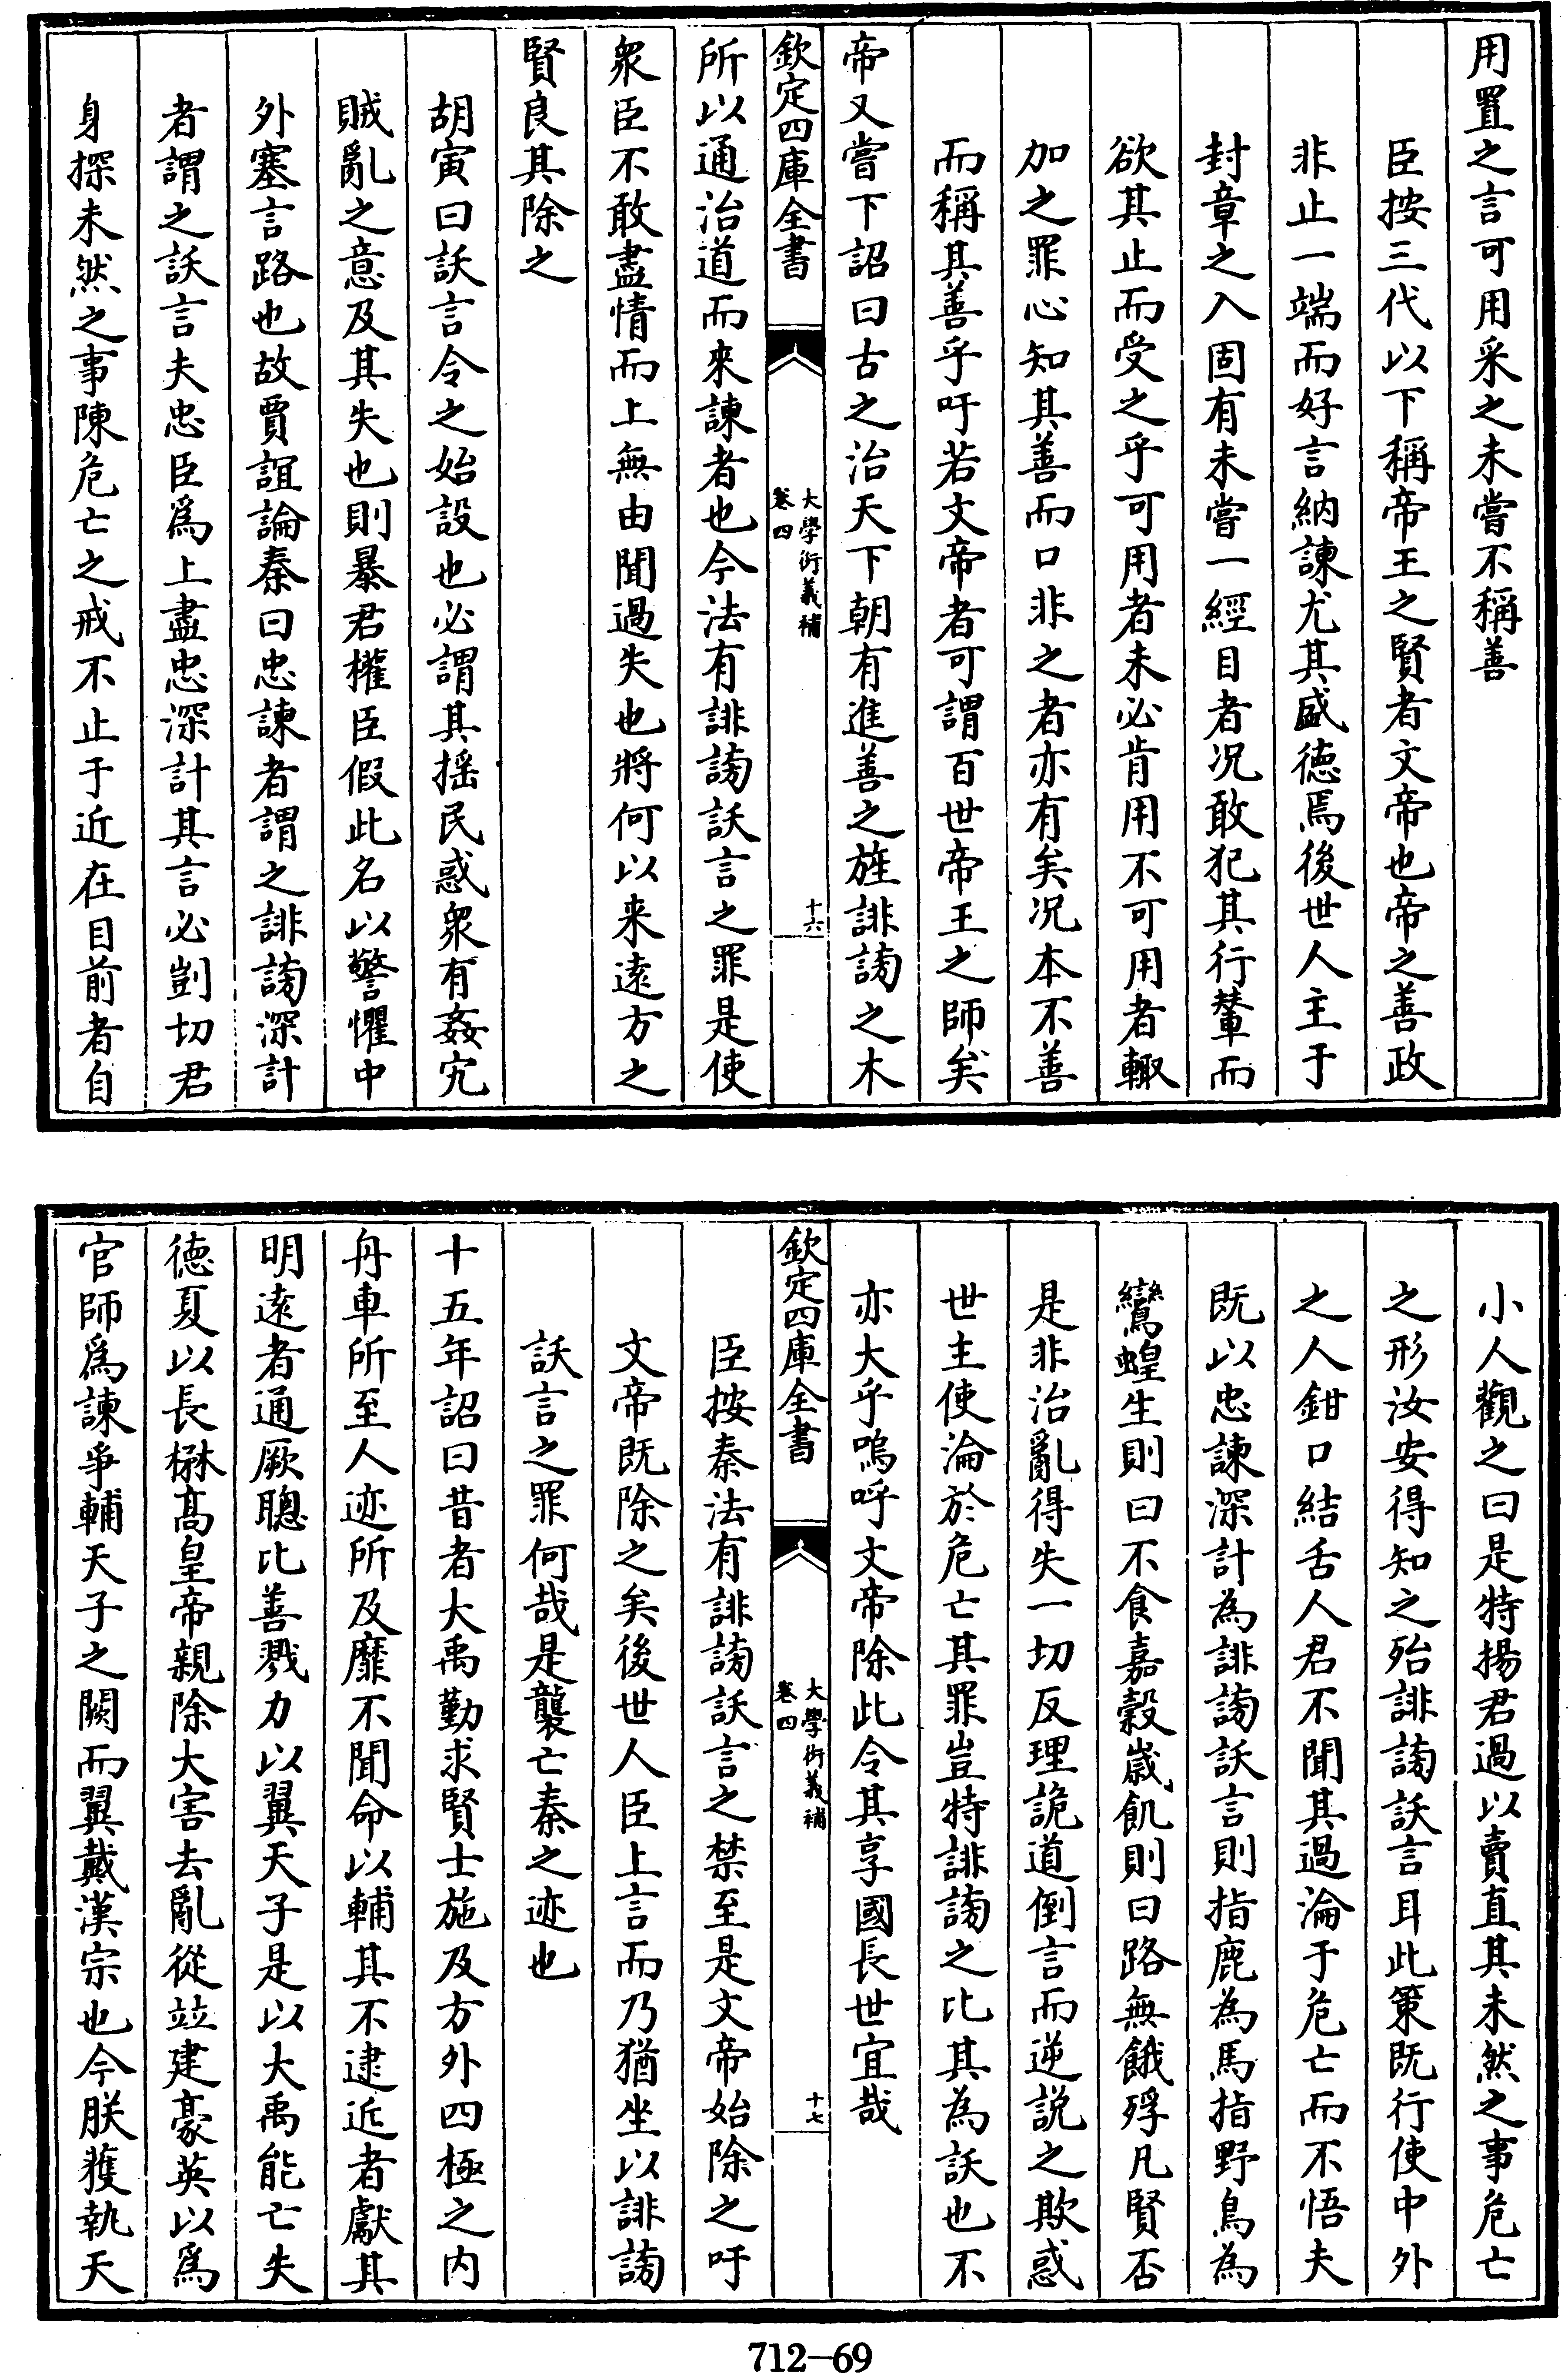 用置之言可用采之未嘗不稱善
臣按三代以下稱帝王之賢者文帝也帝之善政
非止一端而好言納諫尤其盛德焉後世人主于
封章之入固有未嘗一經目者况敢犯其行輦而
欲其止而受之乎可用者未必肯用不可用者輙
加之罪心知其善而口非之者亦有矣况本不善
而稱其善乎吁若文帝者可謂百世帝王之師矣
帝又嘗下詔曰古之治天下朝有進善之旌誹謗之木
欽定四庫全書
大學衍義補
卷四
十六
所以通治道而來諫者也今法有誹謗訞言之罪是使
衆臣不敢盡情而上無由聞過失也將何以来逺方之
賢良其除之
胡寅曰訞言令之始設也必謂其揺民惑衆有姦宄
賊亂之意及其失也則暴君權臣假此名以警懼中
外塞言路也故賈誼論秦曰忠諫者謂之誹謗深計
者謂之訞言夫忠臣爲上盡忠深計其言必剴切君
身探未然之事陳危亡之戒不止于近在目前者自
小人觀之曰是特揚君過以賣直其未然之事危亡
之形汝安得知之殆誹謗訞言耳此策既行使中外
之人鉗口結舌人君不聞其過淪于危亡而不悟夫
既以忠諫深計為誹謗訞言則指鹿為馬指野鳥為
鸞蝗生則曰不食嘉穀嵗飢則曰路無餓殍凡賢否
是非治亂得失一切反理詭道倒言而逆説之欺惑
世主使淪於危亡其罪豈特誹謗之比其為訞也不
亦大乎嗚呼文帝除此令其享國長世宜哉
欽定四庫全書
大學衍義補
卷四
十七
臣按秦法有誹謗訞言之禁至是文帝始除之吁
文帝既除之矣後世人臣上言而乃猶坐以誹謗
訞言之罪何哉是襲亡秦之迹也
十五年詔曰昔者大禹勤求賢士施及方外四極之内
舟車所至人迹所及靡不聞命以輔其不逮近者獻其
明逺者通厥聰比善戮力以翼天子是以大禹能亡失
德夏以長楙髙皇帝親除大害去亂從竝建豪英以爲
官師爲諫爭輔天子之闕而翼戴漢宗也今朕獲執天
712-69